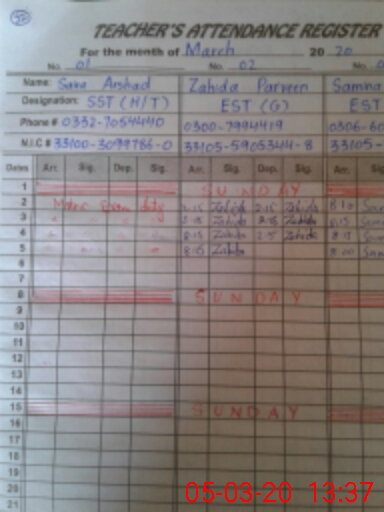 TEACHER'S ATTENDANCE REGISTER
For the month of March 20 20
No. 01 No. 02 No.
Name: Sara Arshad Zahida Parveen Samina
Designation: SST (H/T) EST (G) EST
Phone # 0332-7054440 0300-7994419 0306-60
N.I.C # 33100-3099786-0 33105-5905344-8 33105-
Dates Arr. Sig. Dep. Sig. Arr. Sig. Dep. Sig. Arr. Sig.
1 SUNDAY
2 duty 8:15 Zahida 2:15 Zahida 8:10 Sam
3 8:15 Zahida Zahida 8:15 Sam
4 8:15 Zahida Zahida 8:15 Sam
5 8:15 Zahida 8:00 Sam
6
7
8 SUNDAY
9
10
11
12
13
14
15 SUNDAY
16
17
18
19
20
21
05-03-20 13:37